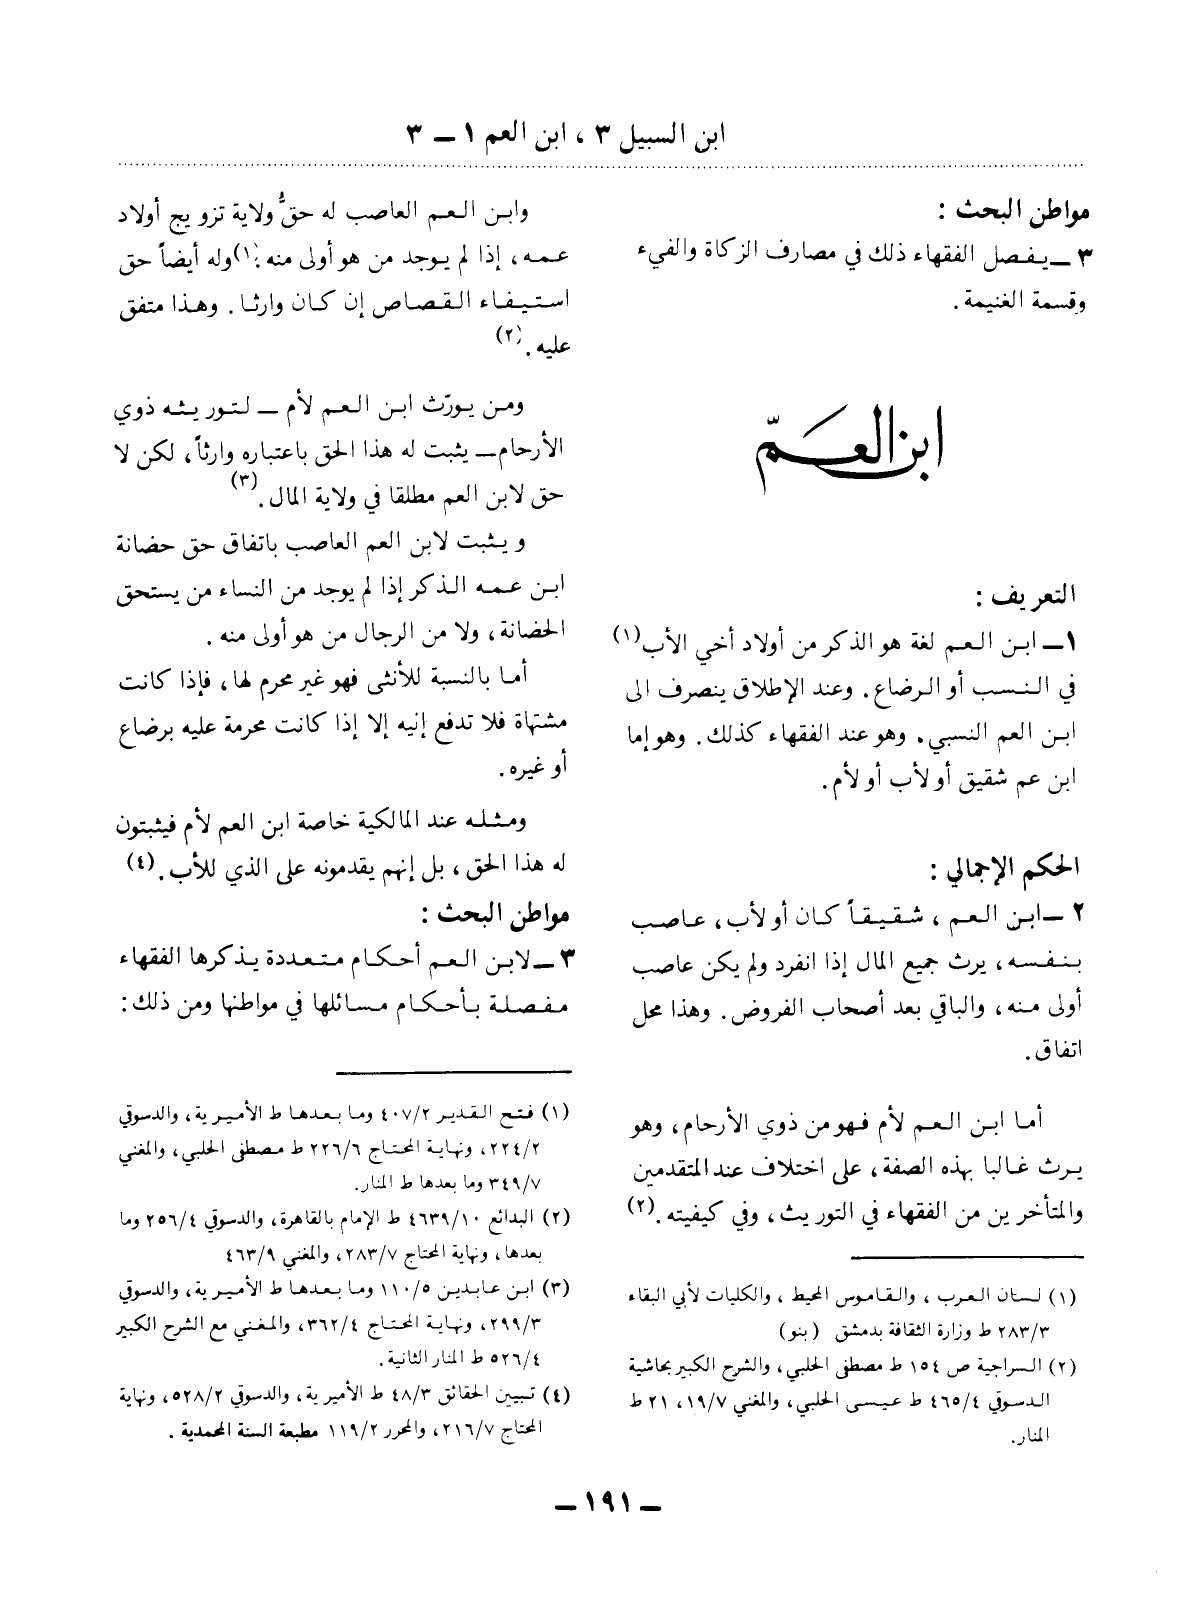 ابن السبيل ٣ ، ابن العم ١ ــ ٣
مواطن البحث :
٣ ــ يفصل الفقهاء ذلك في مصارف الزكاة والفيء
وقسمة الغنيمة .
ابن العمّ
التعريف :
١ ــ ابن العم لغة هو الذكر من أولاد أخي الأب (١)
في النسب أو الرضاع . وعند الإطلاق ينصرف الى
ابن العم النسبي . وهو عند الفقهاء كذلك . وهو إما
ابن عم شقيق أو لأب أو لأم .
الحكم الإجمالي :
٢ ــ ابن العم ، شقيقاً كان أو لأب ، عاصب
بنفسه ، يرث جميع المال إذا انفرد ولم يكن عاصب
أولى منه ، والباقي بعد أصحاب الفروض . وهذا محل
اتفاق .
أما ابن العم لأم فهو من ذوي الأرحام ، وهو
يرث غالبا بهذه الصفة ، على اختلاف عند المتقدمين
والمتأخرين من الفقهاء في التوريث ، وفي كيفيته . (٢)
(١) لسان العرب ، والقاموس المحيط ، والكليات لأبي البقاء
٢٨٣/٣ ط وزارة الثقافة بدمشق ( بنو )
(٢) السراجية ص ١٥٤ ط مصطفى الحلبي ، والشرح الكبير بحاشية
الدسوقي ٤٦٥/٤ ط عيسى الحلبي ، والمغني ١٩/٧ ، ٢١ ط
المنار .
وابن العم العاصب له حقُّ ولاية تزويج أولاد
عمه ، إذا لم يوجد من هو أولى منه . (١) وله أيضاً حق
استيفاء القصاص إن كان وارثا . وهذا متفق
عليه . (٢)
ومن يورّث ابن العم لأم ــ لتوريثه ذوي
الأرحام ــ يثبت له هذا الحق باعتباره وارثاً ، لكن لا
حق لابن العم مطلقا في ولاية المال . (٣)
ويثبت لابن العم العاصب باتفاق حق حضانة
ابن عمه الذكر إذا لم يوجد من النساء من يستحق
الحضانة ، ولا من الرجال من هو أولى منه .
أما بالنسبة للأنثى فهو غير محرم لها ، فإذا كانت
مشتهاة فلا تدفع إنيه إلا إذا كانت محرمة عليه برضاع
أو غيره .
ومثله عند المالكية خاصة ابن العم لأم فيثبتون
له هذا الحق ، بل إنهم يقدمونه على الذي للأب . (٤)
مواطن البحث :
٣ ــ لابن العم أحكام متعددة يذكرها الفقهاء
مفصلة بأحكام مسائلها في مواطنها ومن ذلك :
(١) فتح القدير ٤٠٧/٢ وما بعدها ط الأميرية ، والدسوقي
٢٢٤/٢ ، ونهاية المحتاج ٢٢٦/٦ ط مصطفى الحلبي ، والمغني
٣٤٩/٧ وما بعدها ط المنار .
(٢) البدائع ٤٦٣٩/١٠ ط الإمام بالقاهرة ، والدسوقي ٢٥٦/٤ وما
بعدها ، ونهاية المحتاج ٢٨٣/٧ ، والمغني ٤٦٣/٩
(٣) ابن عابدين ١١٠/٥ وما بعدها ط الأميرية ، والدسوقي
٢٩٩/٣ ، ونهاية المحتاج ٣٦٢/٤ ، والمغني مع الشرح الكبير
٥٢٦/٤ ط المنار الثانية .
(٤) تبيين الحقائق ٤٨/٣ ط الأميرية ، والدسوقي ٥٢٨/٢ ، ونهاية
المحتاج ٢١٦/٧ ، والمحرر ١١٩/٢ مطبعة السنة المحمدية .
ــ ١٩١ ــ